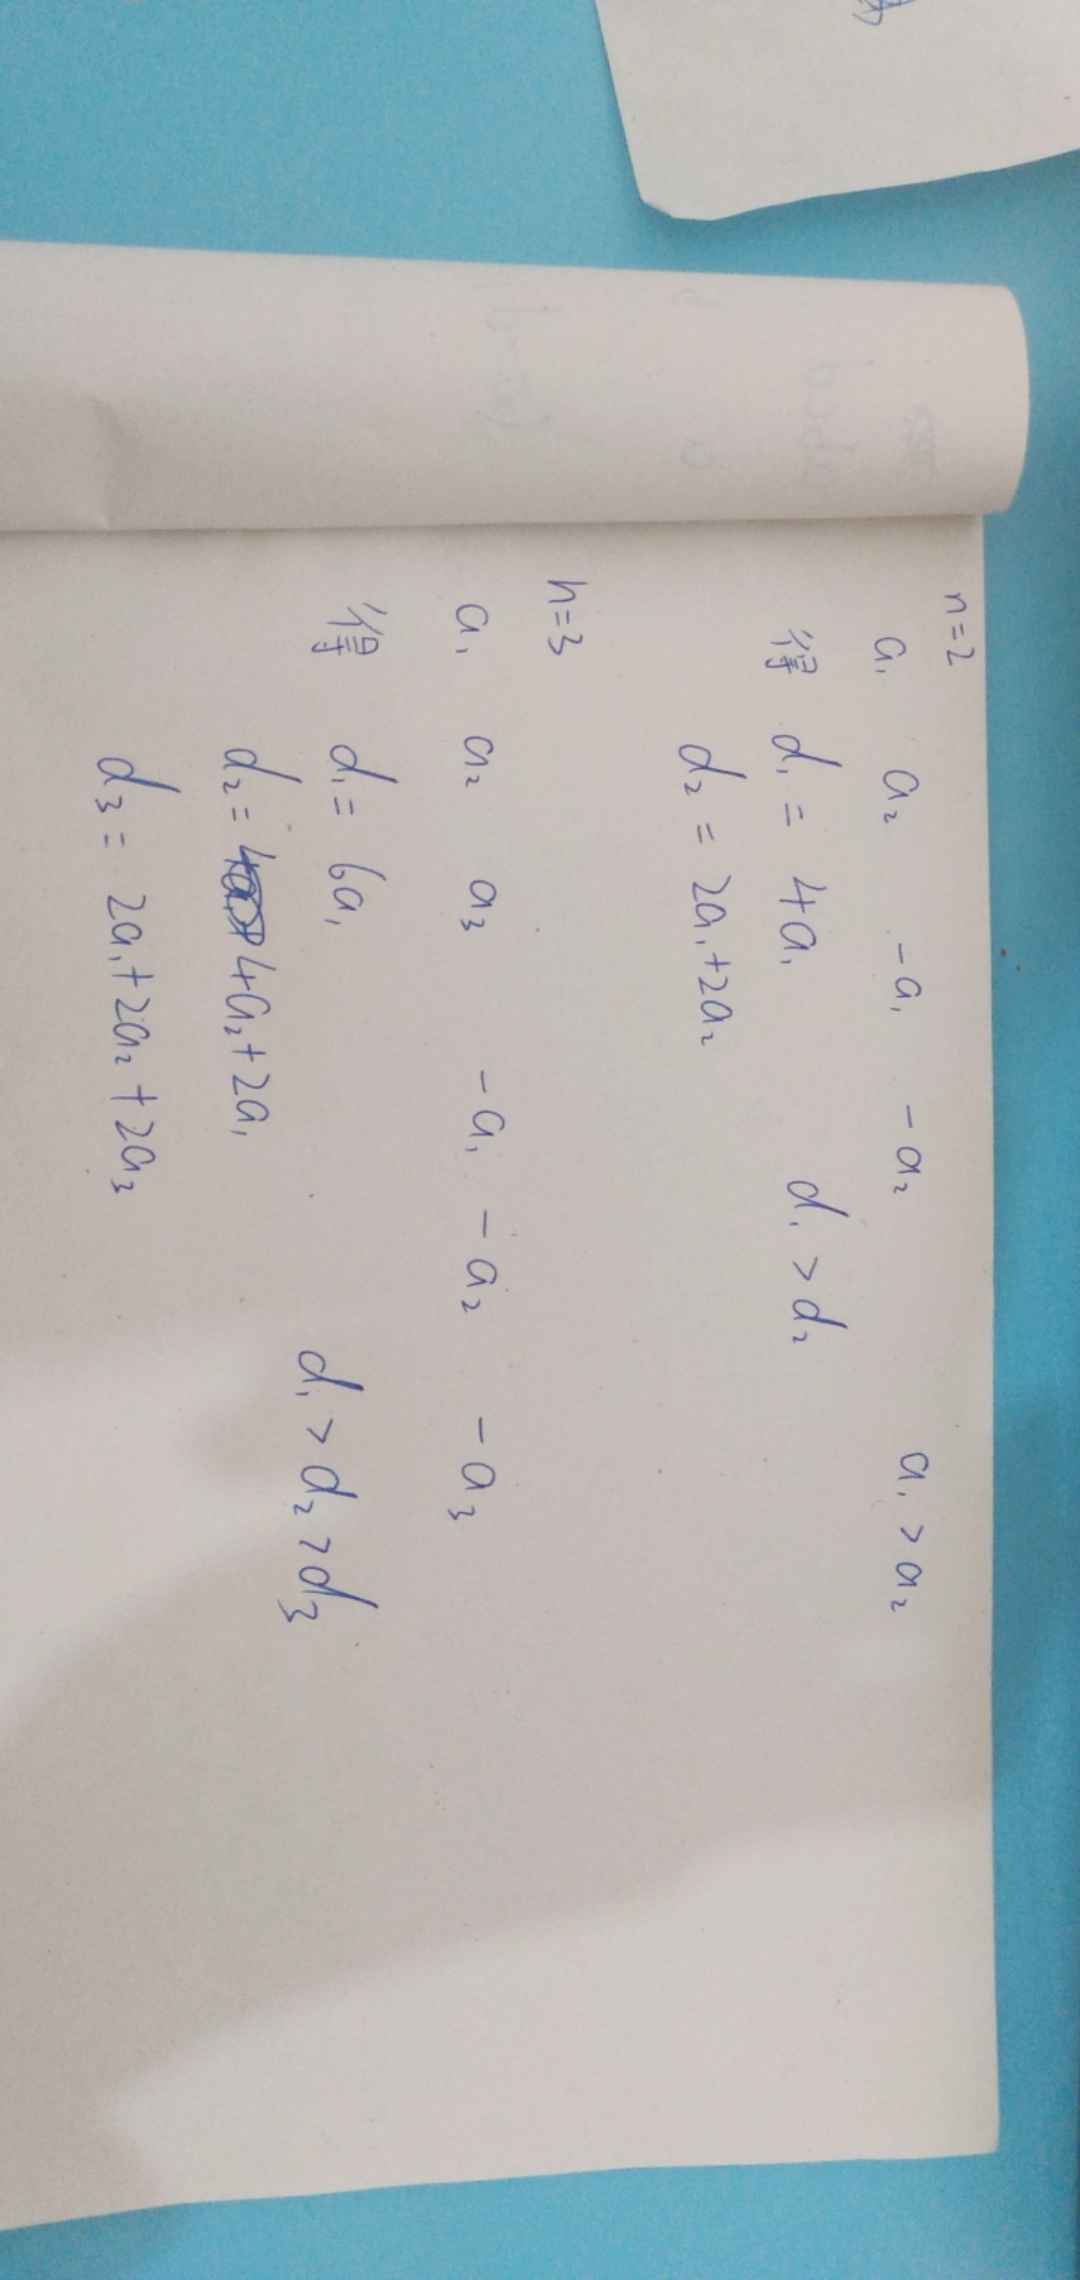 n=2
a₁ a₂ -a₁ -a₂ a₁>a₂
得 d₁=4a₁ d₁>d₂
d₂=2a₁+2a₂
n=3
a₁ a₂ a₃ -a₁ -a₂ -a₃
得 d₁=6a₁ d₁>d₂>d₃
d₂=4a₂+2a₁
d₃=2a₁+2a₂+2a₃